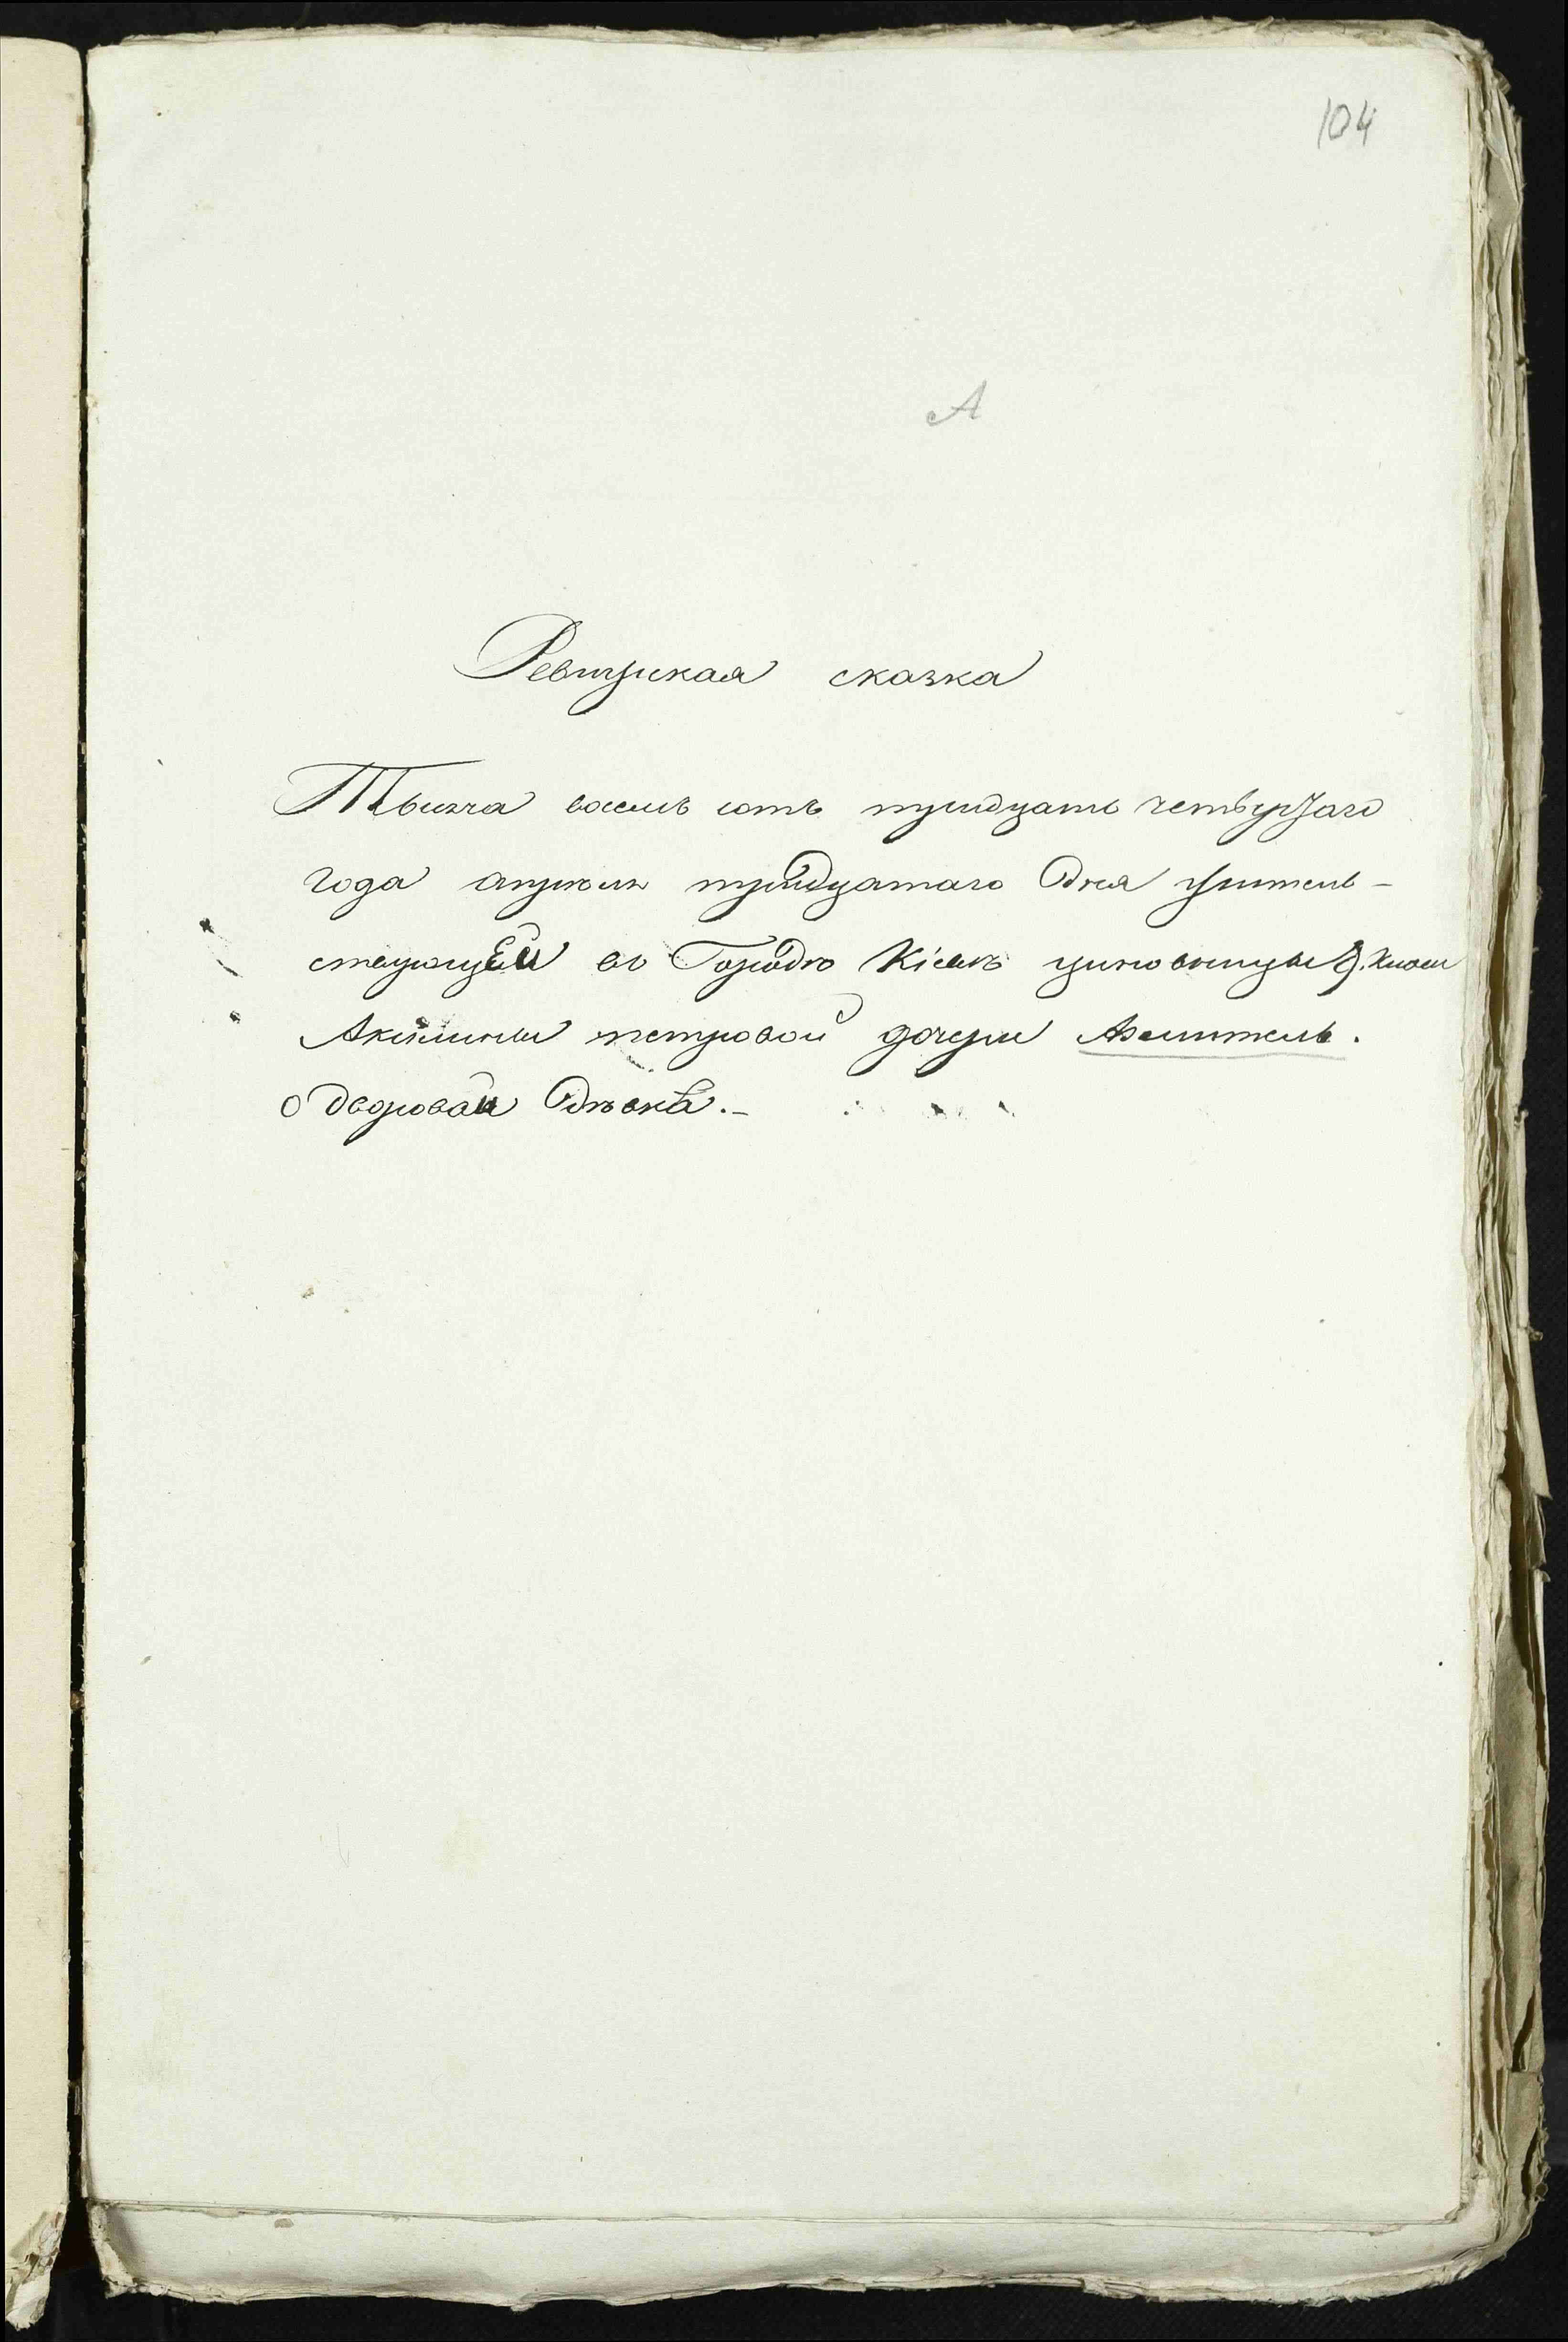 104
А
Ревизская сказка
Тысяча восемь сотъ тридцать четвертаго
года апрѣля тридцатаго дня житель-
ствующей въ Городѣ Кіевѣ чиновницы
Акилины петровой дочери
о дворовой дѣвкѣ.-